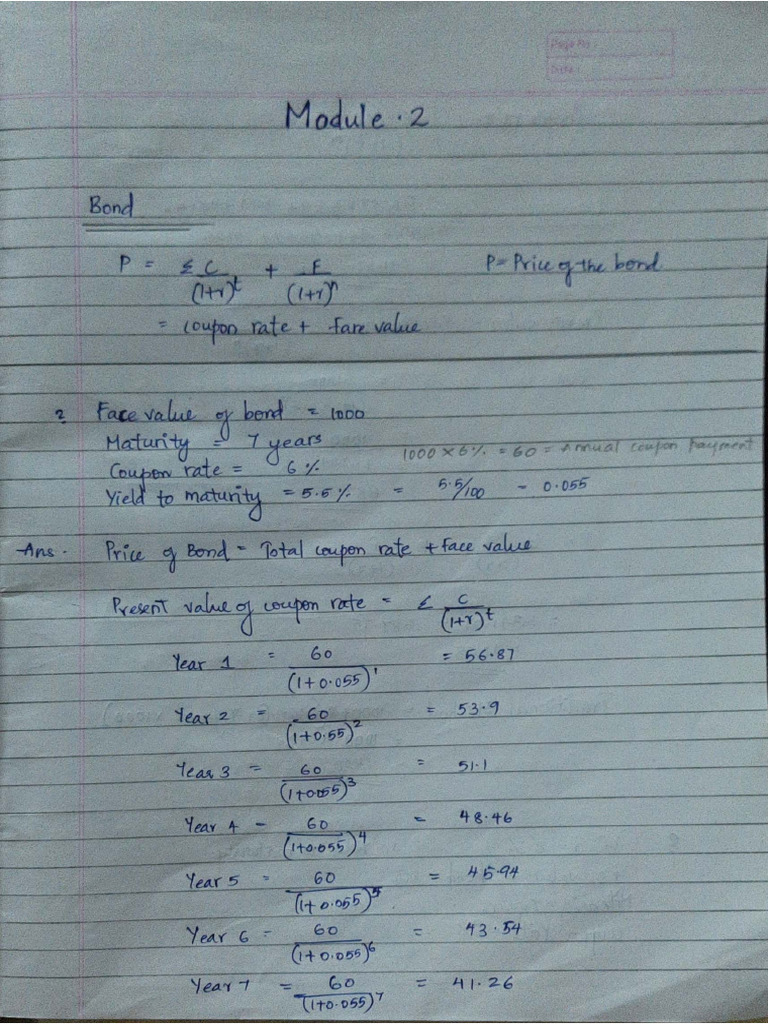 Page No :
Date :
Module · 2
Bond
P = Σ C/(1+r)^t + F/(1+r)^n P = Price of the bond
= coupon rate + fare value
? Face value of bond = 1000
Maturity = 7 years
1000 x 6% = 60 = Annual coupon payment
Coupon rate = 6 %
Yield to maturity = 5.5 % = 5.5/100 - 0.055
Ans. Price of Bond = Total coupon rate + face value
Present value of coupon rate = Σ C/(1+r)^t
Year 1 = 60/(1+0.055)^1 = 56.87
Year 2 = 60/(1+0.55)^2 = 53.9
Year 3 = 60/(1+0055)^3 = 51.1
Year 4 - 60/(1+0.055)^4 = 48.46
Year 5 = 60/(1+0.055)^5 = 45.94
Year 6 = 60/(1+0.055)^6 = 43.54
Year 7 = 60/(1+0.055)^7 = 41.26